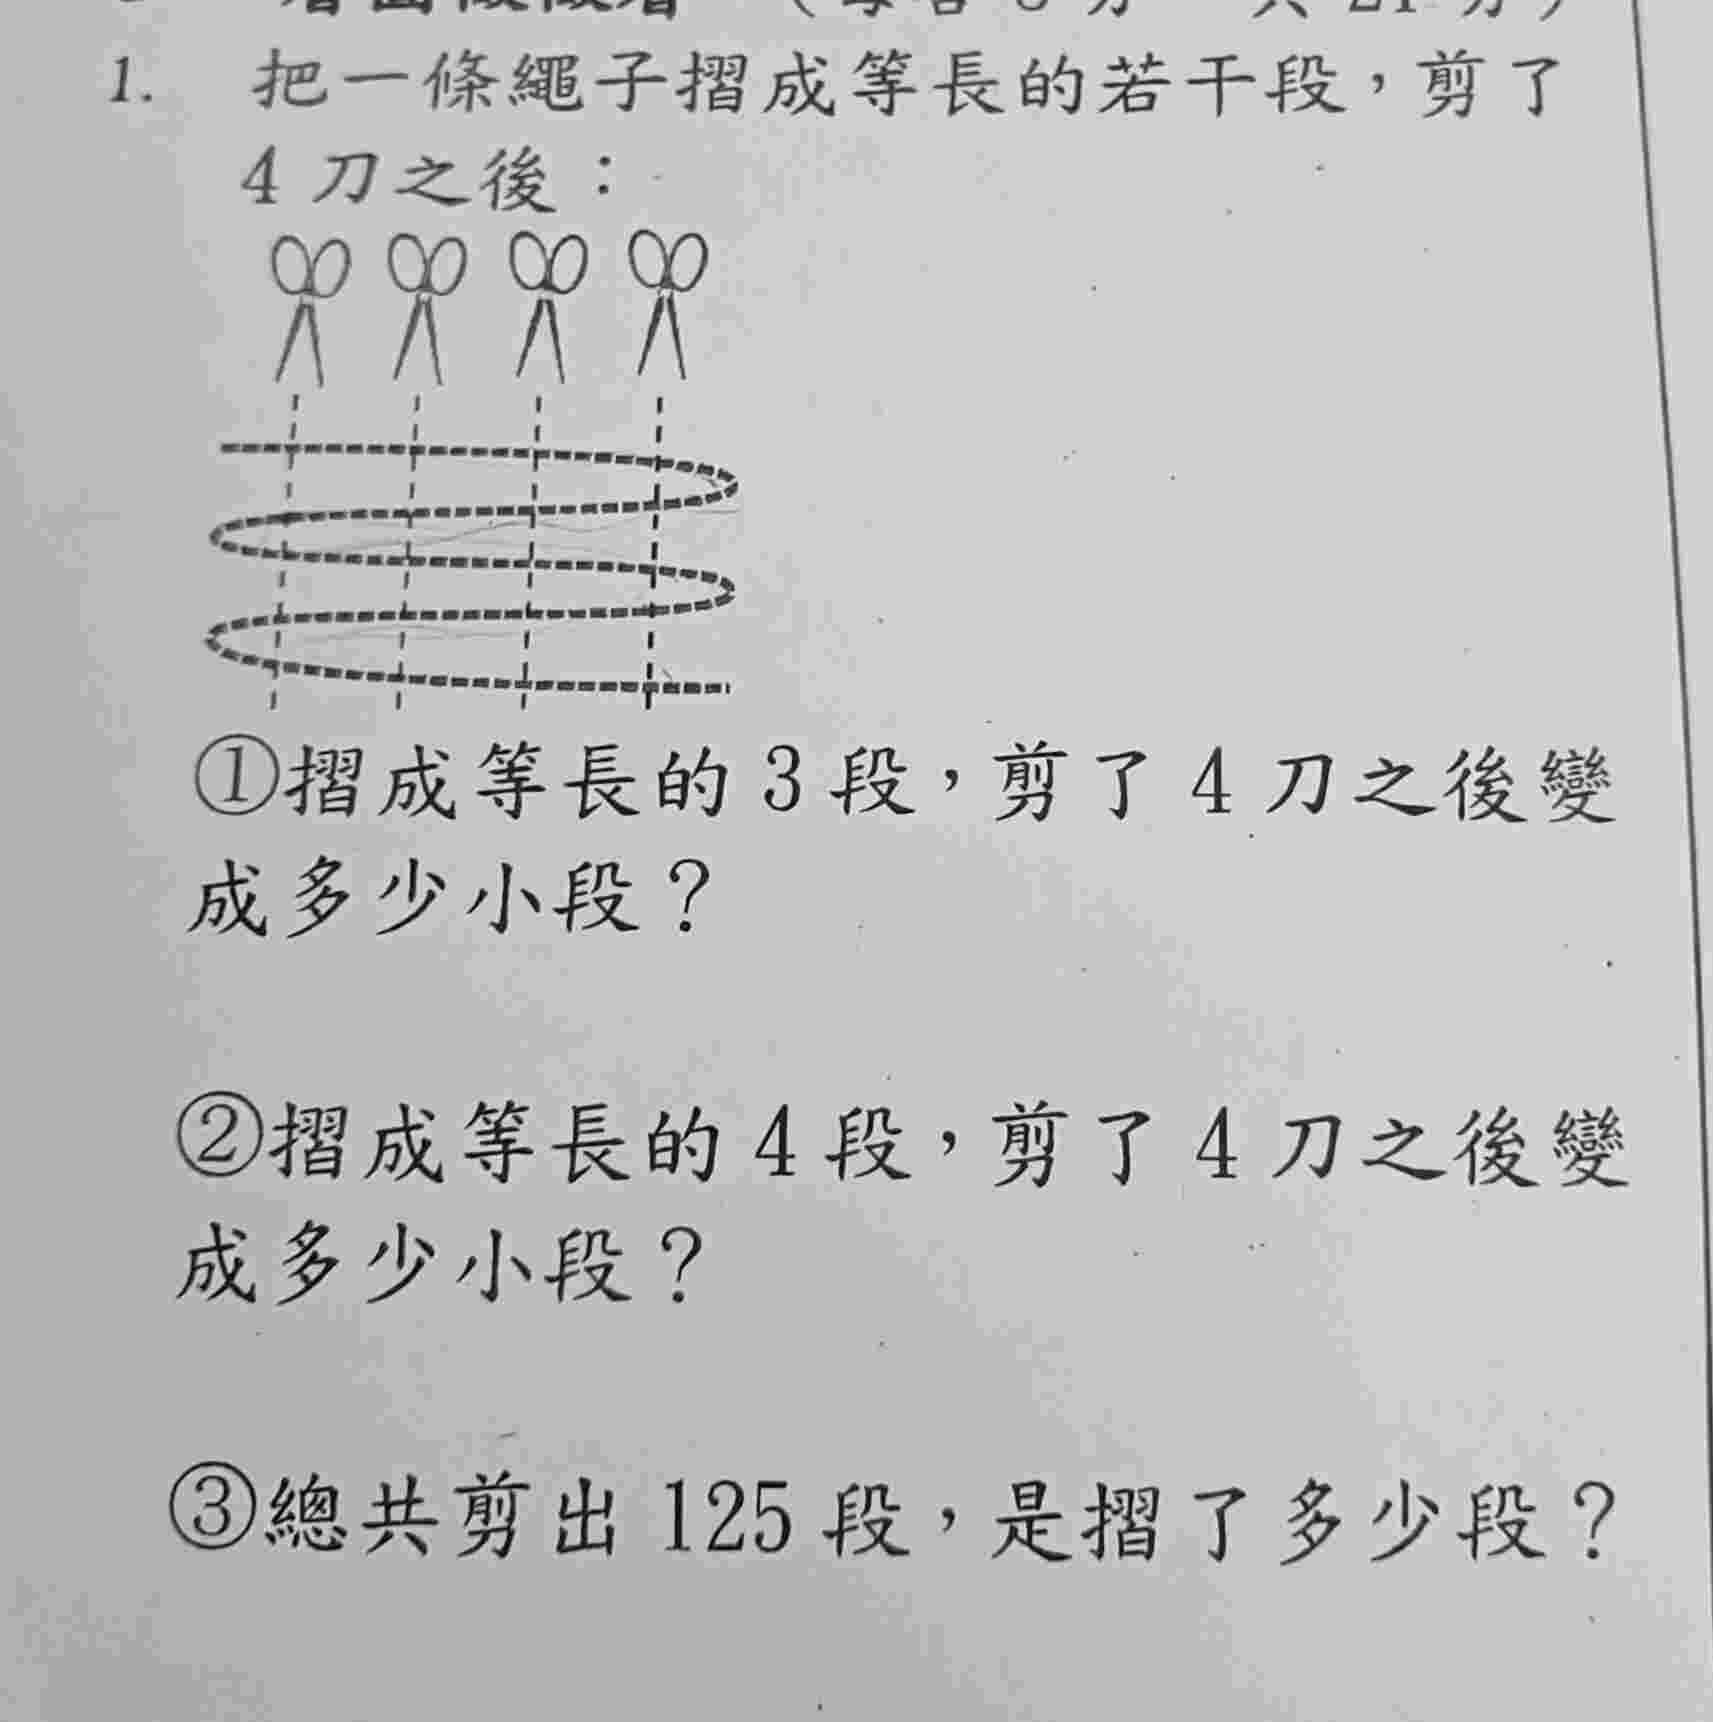 1. 把一條繩子摺成等長的若干段，剪了
4 刀之後：
①摺成等長的 3 段，剪了 4 刀之後變
成多少小段？
②摺成等長的 4 段，剪了 4 刀之後變
成多少小段？
③總共剪出 125 段，是摺了多少段？